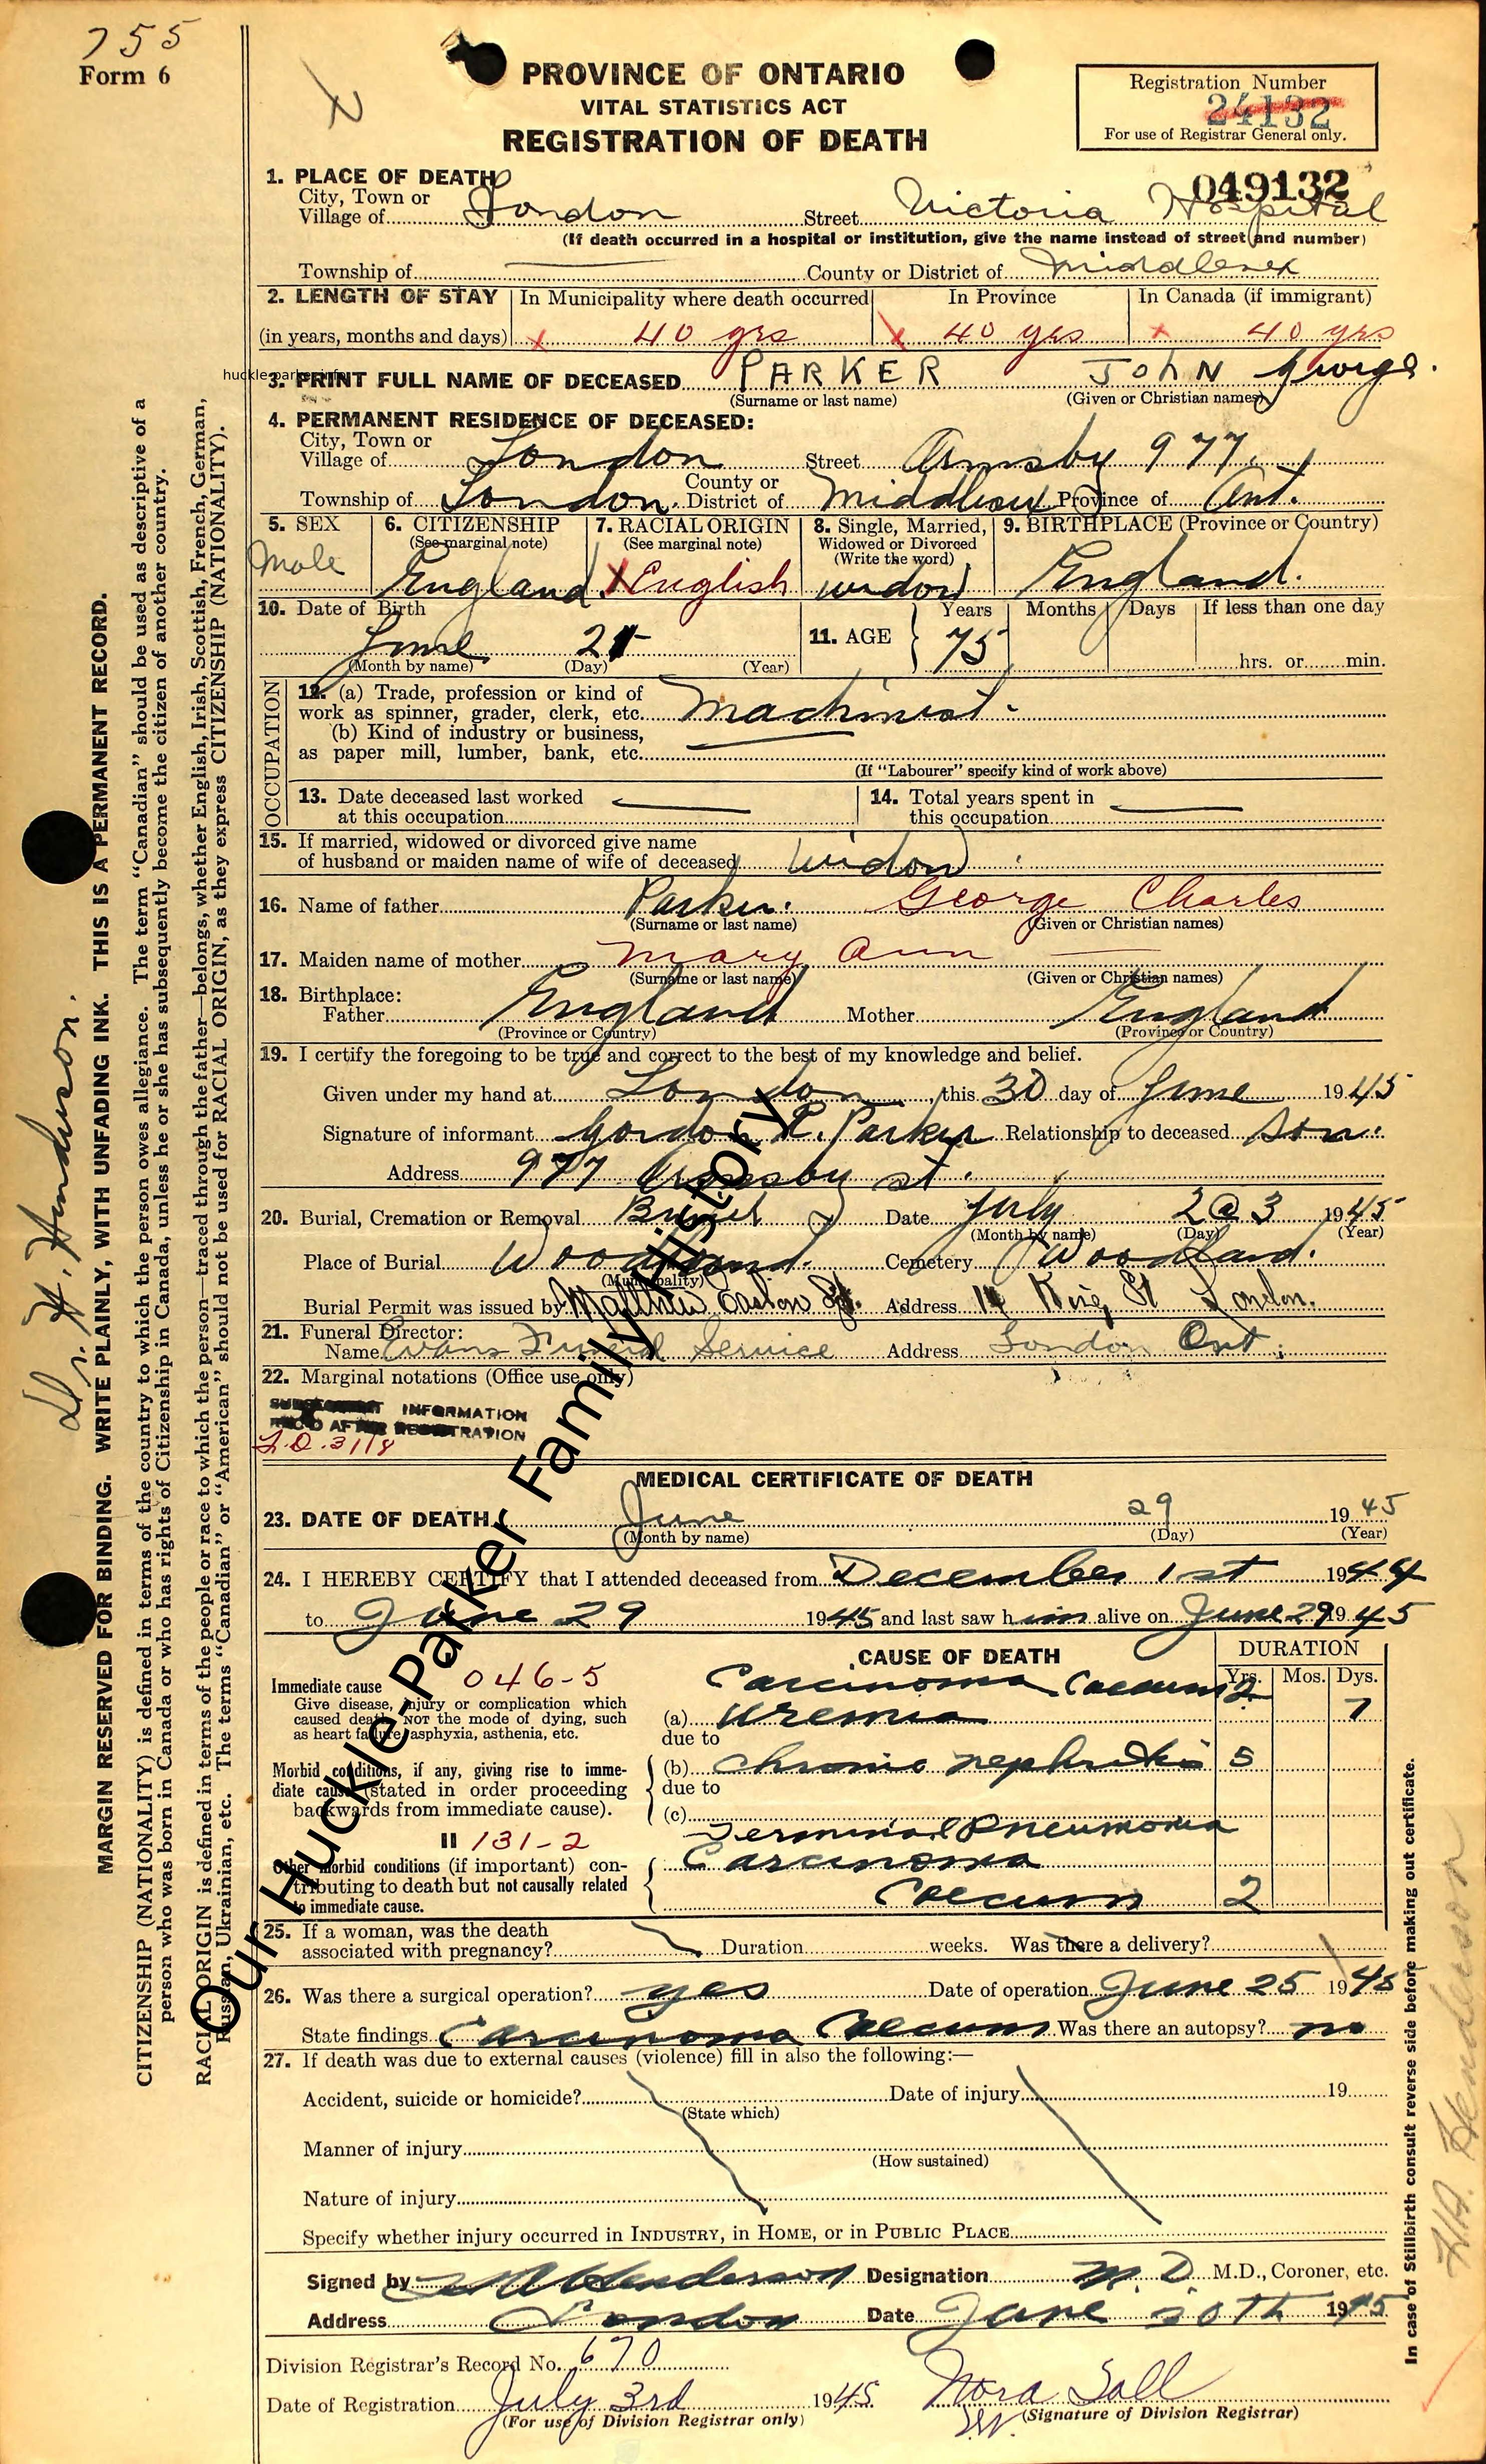 755
Form 6
PROVINCE OF ONTARIO
VITAL STATISTICS ACT
REGISTRATION OF DEATH
Registration Number
24132
For use of Registrar General only.
049132
1. PLACE OF DEATH
City, Town or
Village of London Street Victoria Hospital
(If death occurred in a hospital or institution, give the name instead of street and number)
Township of County or District of Middlesex
2. LENGTH OF STAY In Municipality where death occurred In Province In Canada (if immigrant)
(in years, months and days) x 40 yrs x 40 yrs x 40 yrs
huckle-parker.info
3. PRINT FULL NAME OF DECEASED PARKER JOHN George.
(Surname or last name) (Given or Christian names)
4. PERMANENT RESIDENCE OF DECEASED:
City, Town or
Village of London Street Ormsby 977.
Township of London. County or District of Middlesex Province of Ont.
5. SEX 6. CITIZENSHIP 7. RACIAL ORIGIN 8. Single, Married, 9. BIRTHPLACE (Province or Country)
(See marginal note) (See marginal note) Widowed or Divorced
(Write the word)
Male England. X English widow England.
10. Date of Birth 11. AGE Years Months Days If less than one day
June 21 75 hrs. or min.
(Month by name) (Day) (Year)
OCCUPATION
12. (a) Trade, profession or kind of
work as spinner, grader, clerk, etc. Machinist.
(b) Kind of industry or business,
as paper mill, lumber, bank, etc.
(If "Labourer" specify kind of work above)
13. Date deceased last worked 14. Total years spent in
at this occupation this occupation
15. If married, widowed or divorced give name
of husband or maiden name of wife of deceased widow
16. Name of father Parker. George Charles
(Surname or last name) (Given or Christian names)
17. Maiden name of mother Mary Ann
(Surname or last name) (Given or Christian names)
18. Birthplace:
Father England Mother England
(Province or Country) (Province or Country)
19. I certify the foregoing to be true and correct to the best of my knowledge and belief.
Given under my hand at London, this 30 day of June 1945
Signature of informant Gordon R. Parker Relationship to deceased Son.
Address 977 Ormsby st.
20. Burial, Cremation or Removal Burial Date July 2 @ 3 1945
(Month by name) (Day) (Year)
Place of Burial Woodland. Cemetery Woodland.
(Municipality)
Burial Permit was issued by Matthew Easton Address King St London.
21. Funeral Director:
Name Evans Funeral Service Address London Ont.
22. Marginal notations (Office use only)
SUBSEQUENT INFORMATION
REC'D AFTER REGISTRATION
3118
MEDICAL CERTIFICATE OF DEATH
23. DATE OF DEATH June 29 1945
(Month by name) (Day) (Year)
24. I HEREBY CERTIFY that I attended deceased from December 1st 1944
to June 29 1945 and last saw him alive on June 29 1945
CAUSE OF DEATH DURATION
Yrs. Mos. Dys.
Immediate cause 046-5 Carcinoma Caecum 2
Give disease, injury or complication which
caused death, NOT the mode of dying, such (a) Uremia 7
as heart failure, asphyxia, asthenia, etc. due to
Morbid conditions, if any, giving rise to imme- (b) Chronic nephritis 5
diate cause (stated in order proceeding due to
backwards from immediate cause). (c)
II 131-2 Terminal Pneumonia
Other morbid conditions (if important) con- Carcinoma
tributing to death but not causally related
to immediate cause. Caecum 2
25. If a woman, was the death
associated with pregnancy? Duration weeks. Was there a delivery?
26. Was there a surgical operation? yes Date of operation June 25 1945
State findings Carcinoma Caecum Was there an autopsy? no
27. If death was due to external causes (violence) fill in also the following:—
Accident, suicide or homicide? Date of injury 19
(State which)
Manner of injury
(How sustained)
Nature of injury
Specify whether injury occurred in INDUSTRY, in HOME, or in PUBLIC PLACE
Signed by Henderson Designation M.D. M.D., Coroner, etc.
Address London Date June 30th 1945
Division Registrar's Record No. 670
Date of Registration July 3rd 1945 Nora Sall
(For use of Division Registrar only) (Signature of Division Registrar)
Dr. H. Henderson.
MARGIN RESERVED FOR BINDING. WRITE PLAINLY, WITH UNFADING INK. THIS IS A PERMANENT RECORD.
CITIZENSHIP (NATIONALITY) is defined in terms of the country to which the person owes allegiance. The term "Canadian" should be used as descriptive of a
person who was born in Canada or who has rights of Citizenship in Canada, unless he or she has subsequently become the citizen of another country.
RACIAL ORIGIN is defined in terms of the people or race to which the person—traced through the father—belongs, whether English, Irish, Scottish, French, German,
Russian, Ukrainian, etc. The terms "Canadian" or "American" should not be used for RACIAL ORIGIN, as they express CITIZENSHIP (NATIONALITY).
Our Huckle-Parker Family History
In case of Stillbirth consult reverse side before making out certificate.
H.A. Henderson